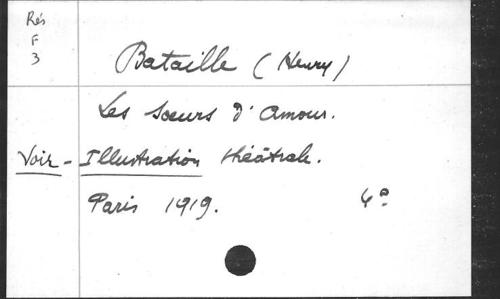 Rés
F
3
Bataille (Henry)
Les sœurs d'amour.
Voir - Illustration théâtrale.
Paris 1919. 4°